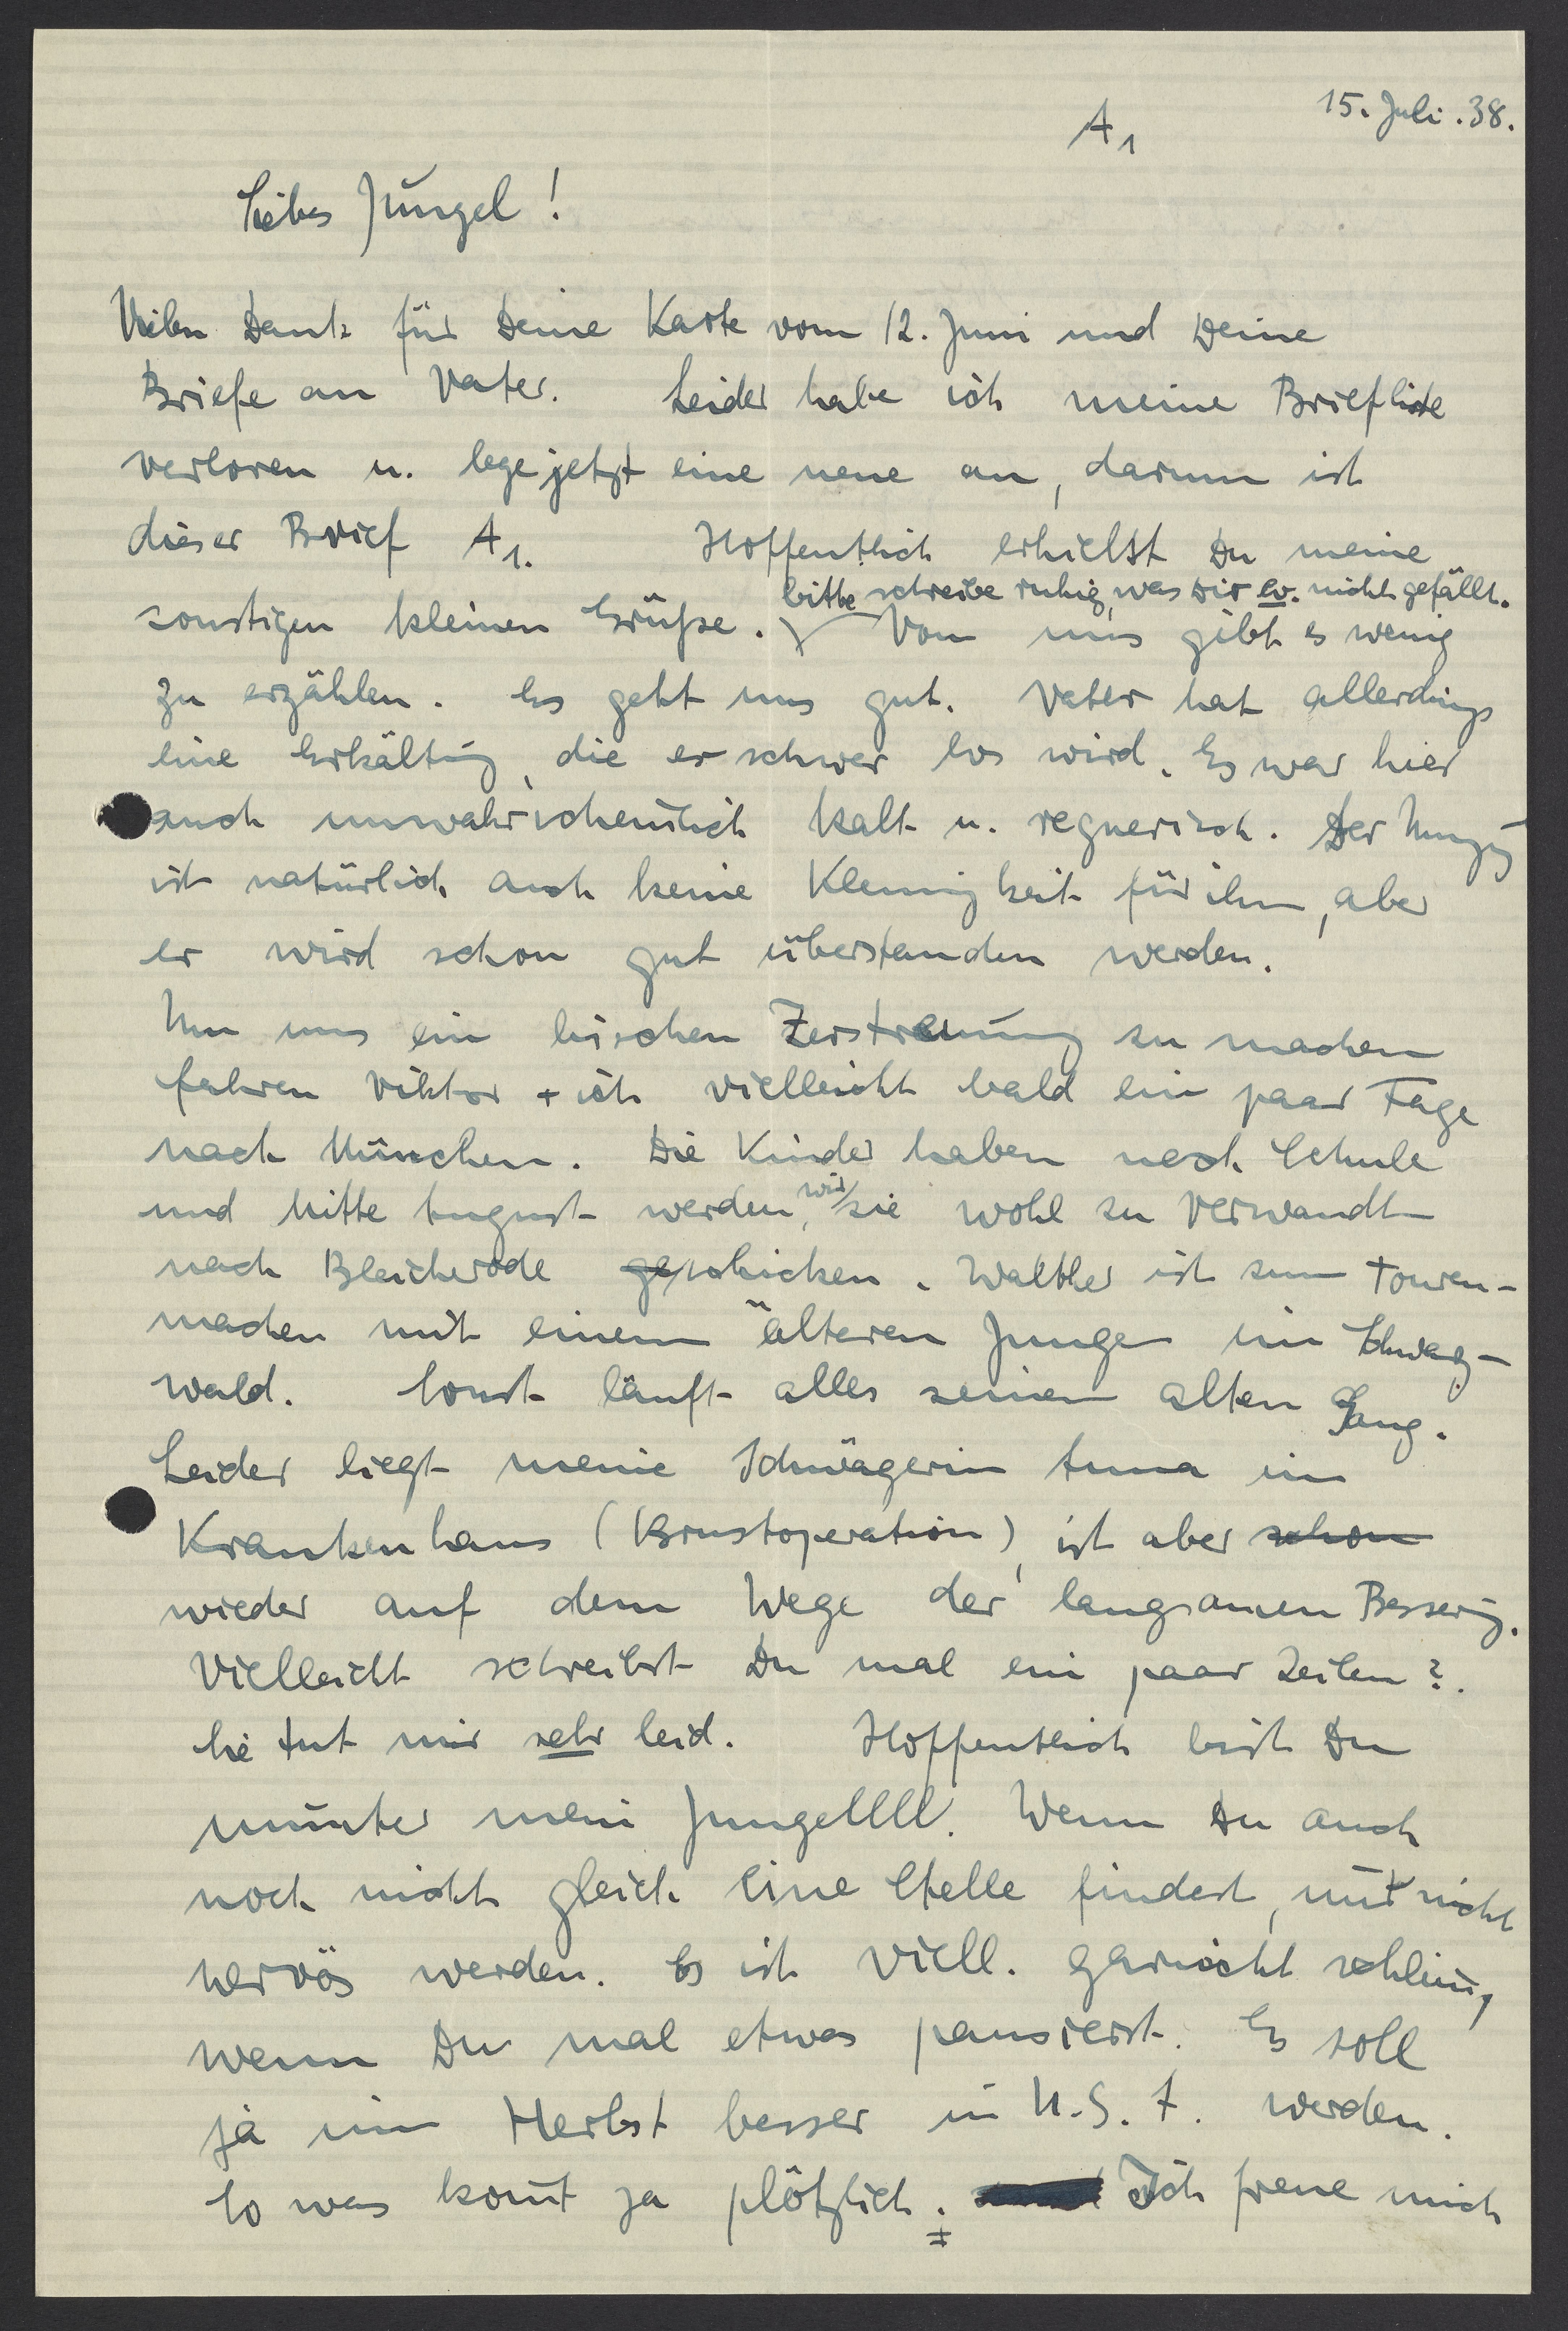 15. Juli. 38.
A1
Liebes Jüngel!
Vielen Dank für Deine Karte vom 12. Juni und Deine
Briefe an Vater. Leider habe ich meine Briefliste
verloren u. lege jetzt eine neue an, darum ist
dieser Brief A1. Hoffentlich erhielst Du meine
bitte schreibe ruhig, was Dir ev. nicht gefällt.
sonstigen kleinen Grüße. Von uns gibt es wenig
zu erzählen. Es geht uns gut. Vater hat allerdings
eine Erkältung, die er schwer los wird. Es war hier
auch unwahrscheinlich kalt u. regnerisch. Der Umzug
ist natürlich auch keine Kleinigkeit für ihn, aber
er wird schon gut überstanden werden.
Um uns ein bischen Zerstreuung zu machen
fahren Viktor + ich vielleicht bald ein paar Tage
nach München. Die Kinder haben noch Schule
und Mitte August werden, wir sie wohl zu Verwandten
nach Bleicherode geschicken. Walther ist zum Touren-
machen mit einem älteren Jungen im Schwarz-
wald. Sonst läuft alles seinen alten Gang.
Leider liegt meine Schwägerin Anna im
Krankenhaus (Brustoperation), ist aber schon
wieder auf dem Wege der langsamen Besserung.
Vielleicht schreibst Du mal ein paar Zeilen?.
Sie tut mir sehr leid. Hoffentlich bist Du
munter mein Jungellll. Wenn Du auch
noch nicht gleich eine Stelle findest, nur nicht
nervös werden. Es ist viell. garnicht schlimm,
wenn Du mal etwas pausierst. Es soll
ja im Herbst besser in U.S.A. werden.
So was kom̄t ja plötzlich. Ich freue mich